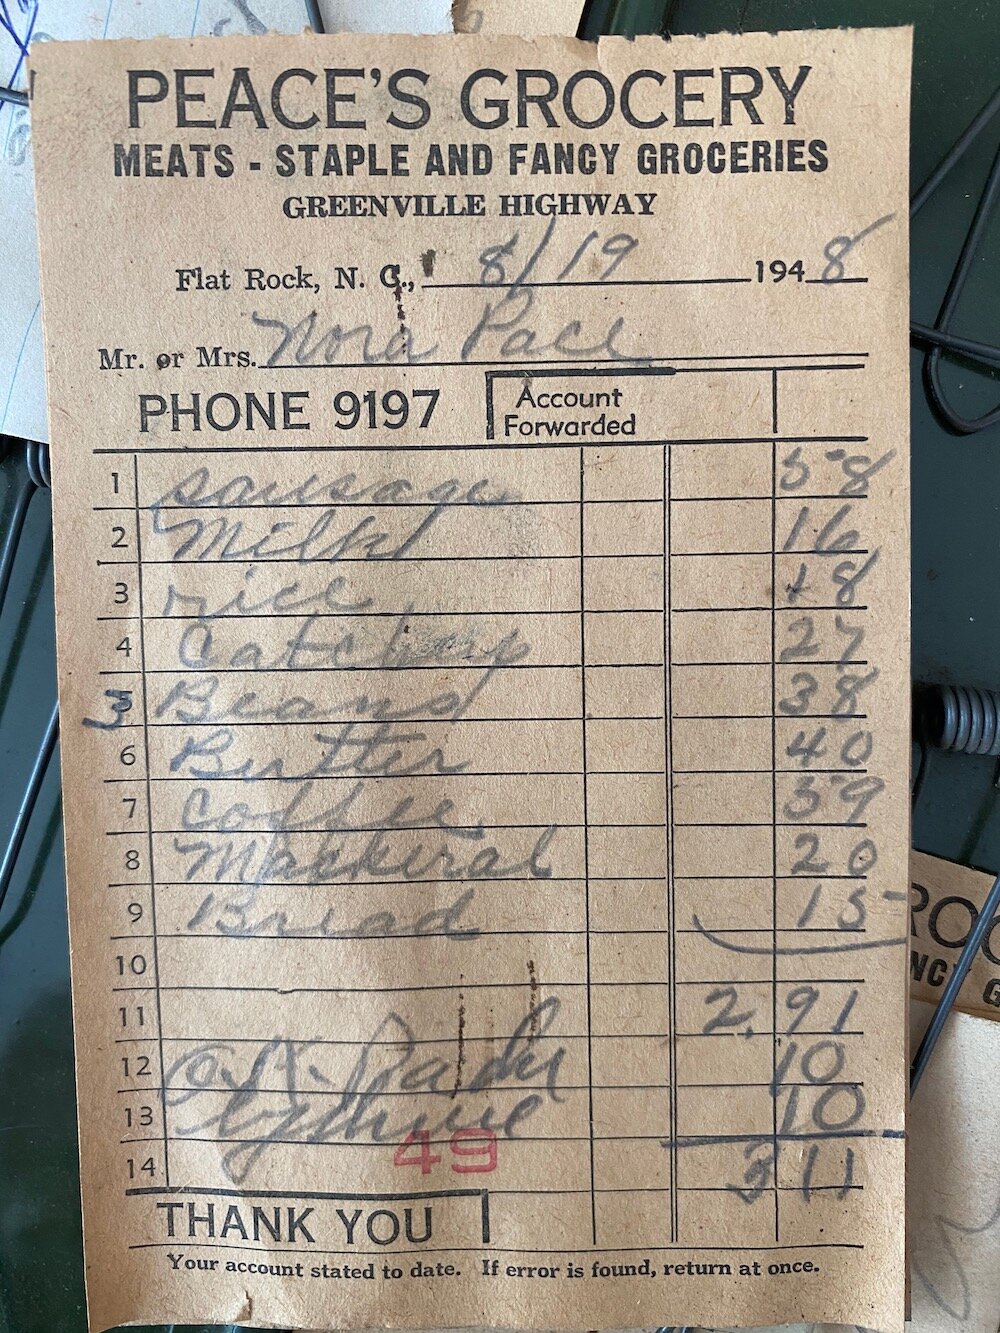 PEACE'S GROCERY
MEATS - STAPLE AND FANCY GROCERIES
GREENVILLE HIGHWAY
Flat Rock, N. C., 8/19 1948
Mr. or Mrs. Nora Pace
PHONE 9197 Account Forwarded
1 sausage 58
2 Milk 16
3 rice 18
4 Catchup 27
3 5 Beans 38
6 Butter 40
7 Coffee 59
8 Mackeral 20
9 Bread 15
10
11 2.91
12 O.K. 10
13 by 10
14 49 3 11
THANK YOU
Your account stated to date. If error is found, return at once.